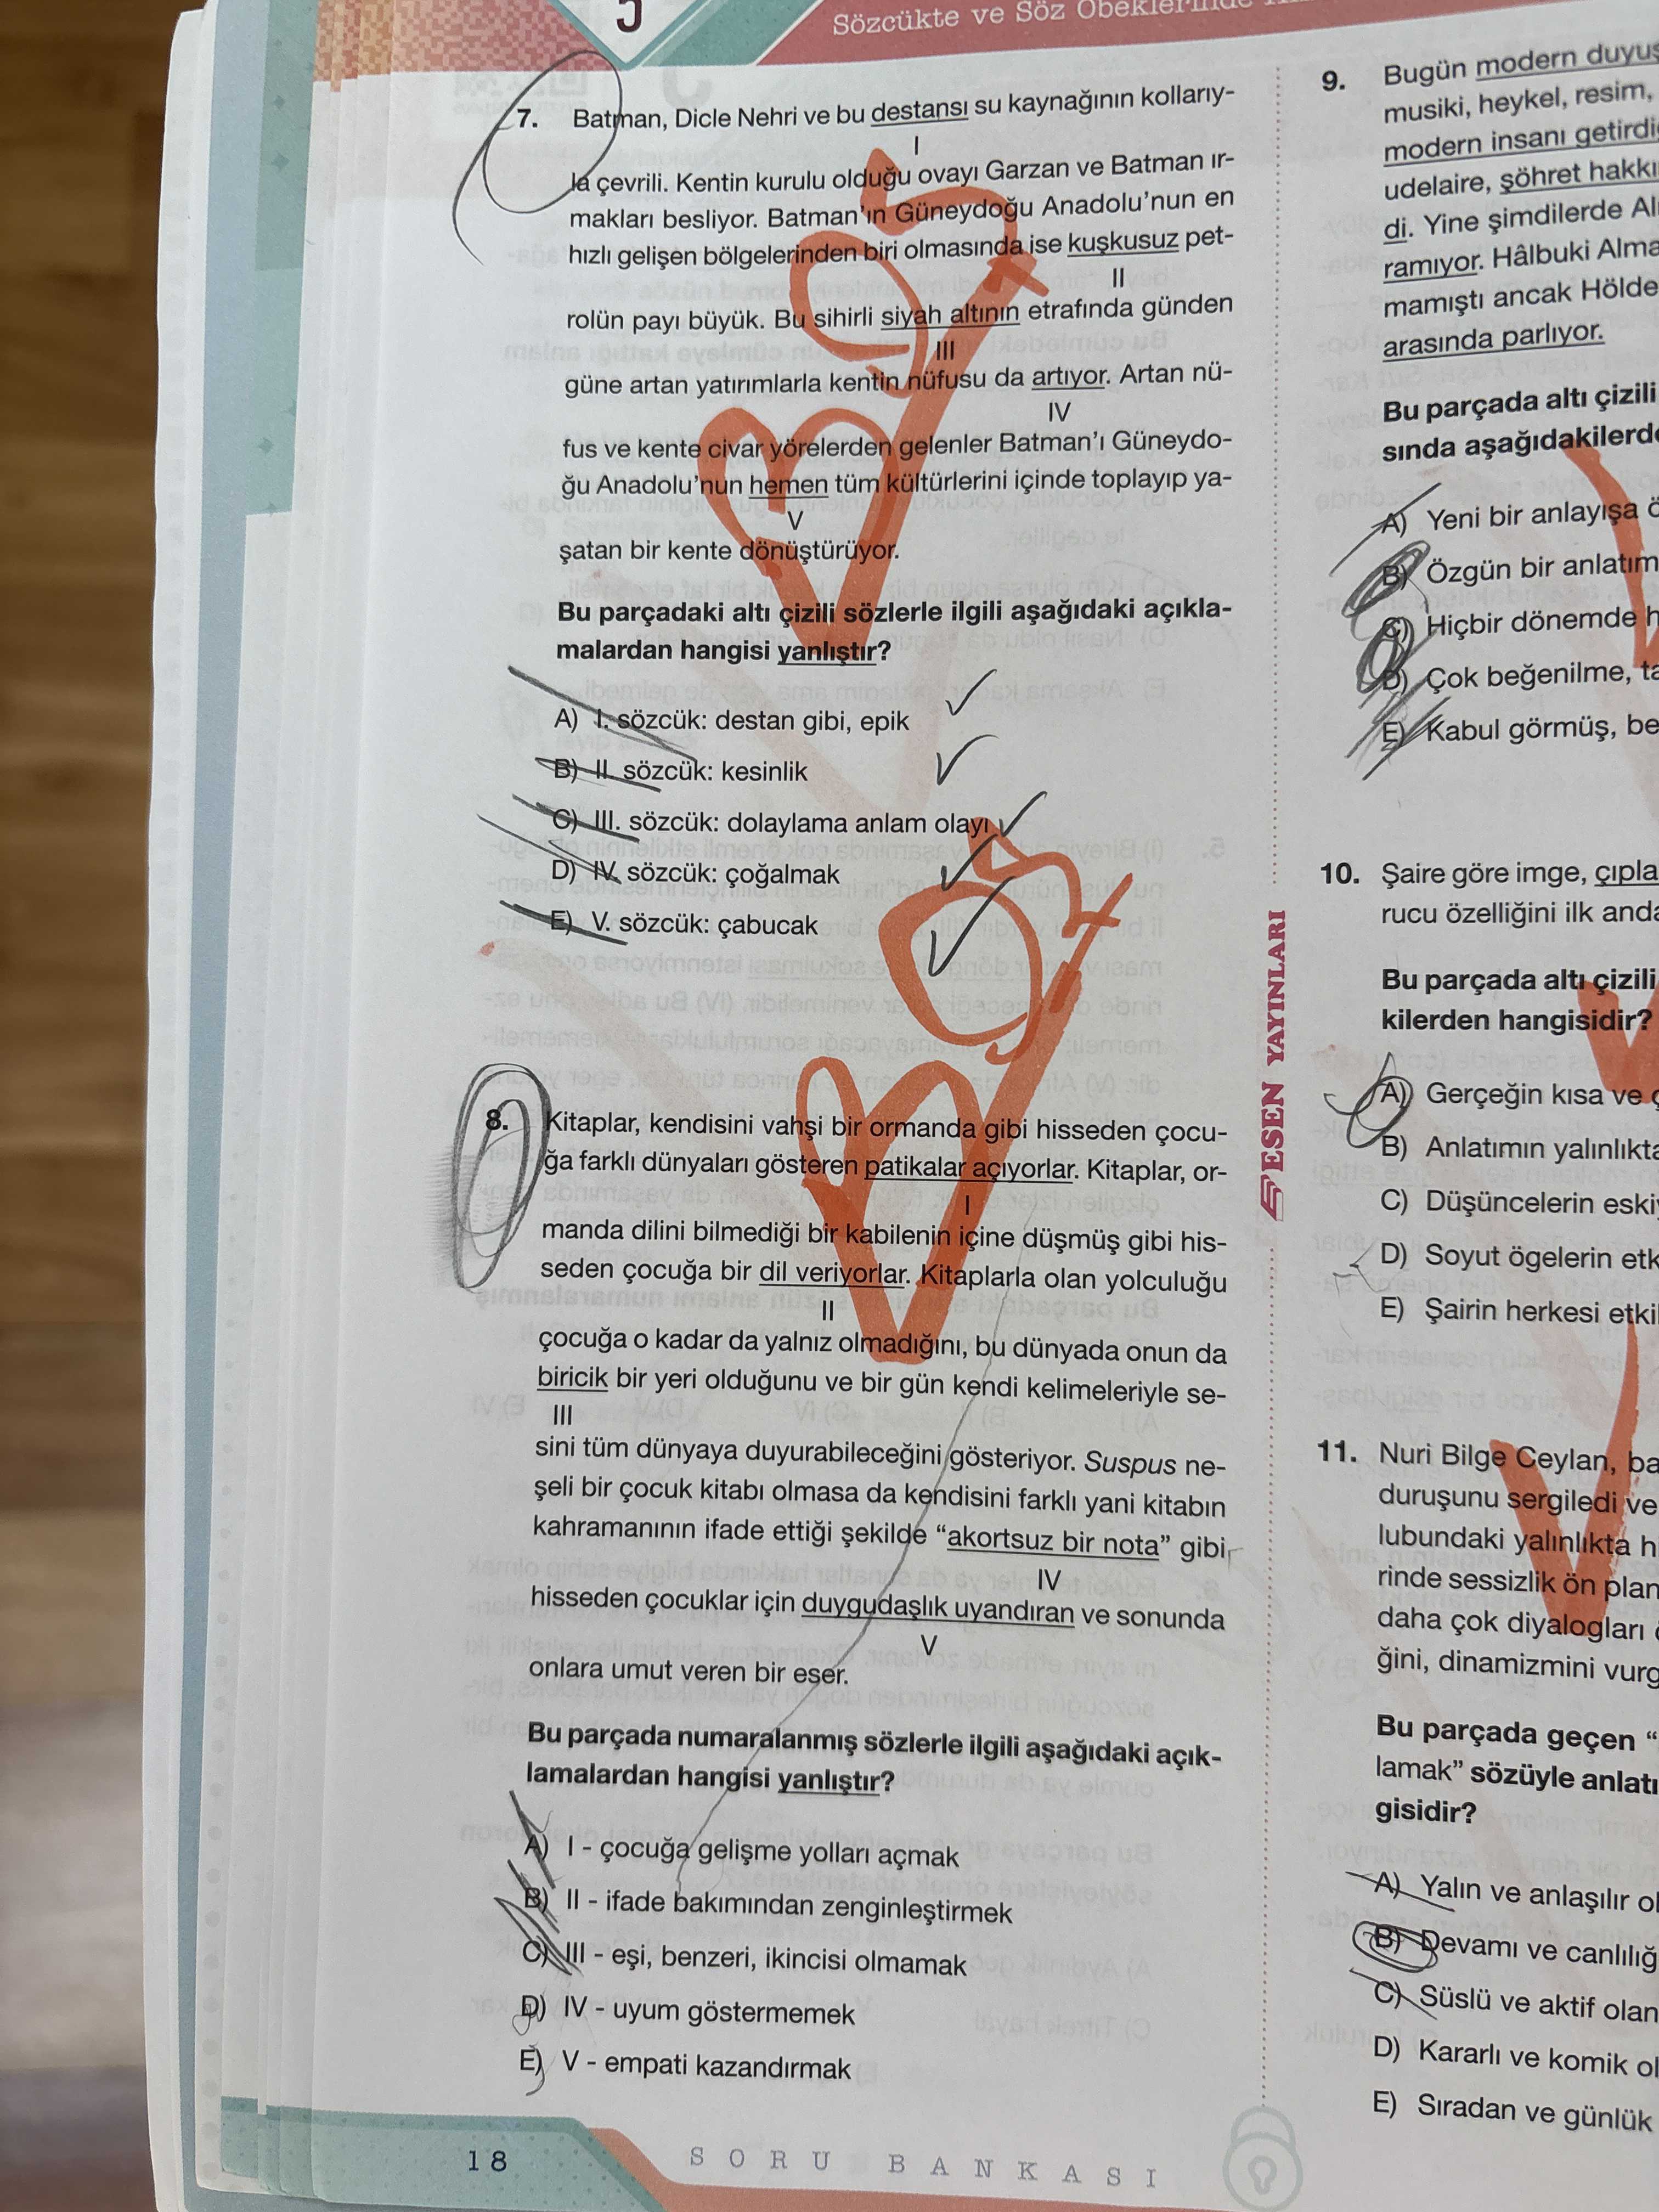 5
Sözcükte ve Söz
7. Batman, Dicle Nehri ve bu destansı su kaynağının kollarıy-
I
la çevrili. Kentin kurulu olduğu ovayı Garzan ve Batman ır-
makları besliyor. Batman'ın Güneydoğu Anadolu'nun en
hızlı gelişen bölgelerinden biri olmasında ise kuşkusuz pet-
II
rolün payı büyük. Bu sihirli siyah altının etrafında günden
III
güne artan yatırımlarla kentin nüfusu da artıyor. Artan nü-
IV
fus ve kente civar yörelerden gelenler Batman'ı Güneydo-
ğu Anadolu'nun hemen tüm kültürlerini içinde toplayıp ya-
V
şatan bir kente dönüştürüyor.
Bu parçadaki altı çizili sözlerle ilgili aşağıdaki açıkla-
malardan hangisi yanlıştır?
A) I. sözcük: destan gibi, epik
B) II. sözcük: kesinlik
C) III. sözcük: dolaylama anlam olayı
D) IV. sözcük: çoğalmak
E) V. sözcük: çabucak
8. Kitaplar, kendisini vahşi bir ormanda gibi hisseden çocu-
ğa farklı dünyaları gösteren patikalar açıyorlar. Kitaplar, or-
I
manda dilini bilmediği bir kabilenin içine düşmüş gibi his-
seden çocuğa bir dil veriyorlar. Kitaplarla olan yolculuğu
II
çocuğa o kadar da yalnız olmadığını, bu dünyada onun da
biricik bir yeri olduğunu ve bir gün kendi kelimeleriyle se-
III
sini tüm dünyaya duyurabileceğini gösteriyor. Suspus ne-
şeli bir çocuk kitabı olmasa da kendisini farklı yani kitabın
kahramanının ifade ettiği şekilde “akortsuz bir nota” gibi
IV
hisseden çocuklar için duygudaşlık uyandıran ve sonunda
V
onlara umut veren bir eser.
Bu parçada numaralanmış sözlerle ilgili aşağıdaki açık-
lamalardan hangisi yanlıştır?
A) I - çocuğa gelişme yolları açmak
B) II - ifade bakımından zenginleştirmek
C) III - eşi, benzeri, ikincisi olmamak
D) IV - uyum göstermemek
E) V - empati kazandırmak
18
SORU BANKASI
ESEN YAYINLARI
9. Bugün modern duyuş
musiki, heykel, resim,
modern insanı
udelaire, şöhret
di. Yine şimdilerde
ramıyor. Hâlbuki
mamıştı ancak
arasında parlıyor.
Bu parçada altı çizili
sında
A) Yeni bir anlayışa
B) Özgün bir anlatım
C) Hiçbir dönemde
D) Çok beğenilme,
E) Kabul görmüş,
10. Şaire göre imge,
rucu özelliğini ilk
Bu parçada altı çizili
kilerden hangisidir?
A) Gerçeğin kısa ve
B) Anlatımın
C) Düşüncelerin
D) Soyut ögelerin
E) Şairin herkesi
11. Nuri Bilge Ceylan,
duruşunu sergiledi ve
lubundaki yalınlıkta
rinde sessizlik ön
daha çok diyalogları
ğini, dinamizmini
Bu parçada geçen “
lamak” sözüyle
gisidir?
A) Yalın ve anlaşılır
B) Devamı ve
C) Süslü ve aktif olan
D) Kararlı ve komik
E) Sıradan ve günlük